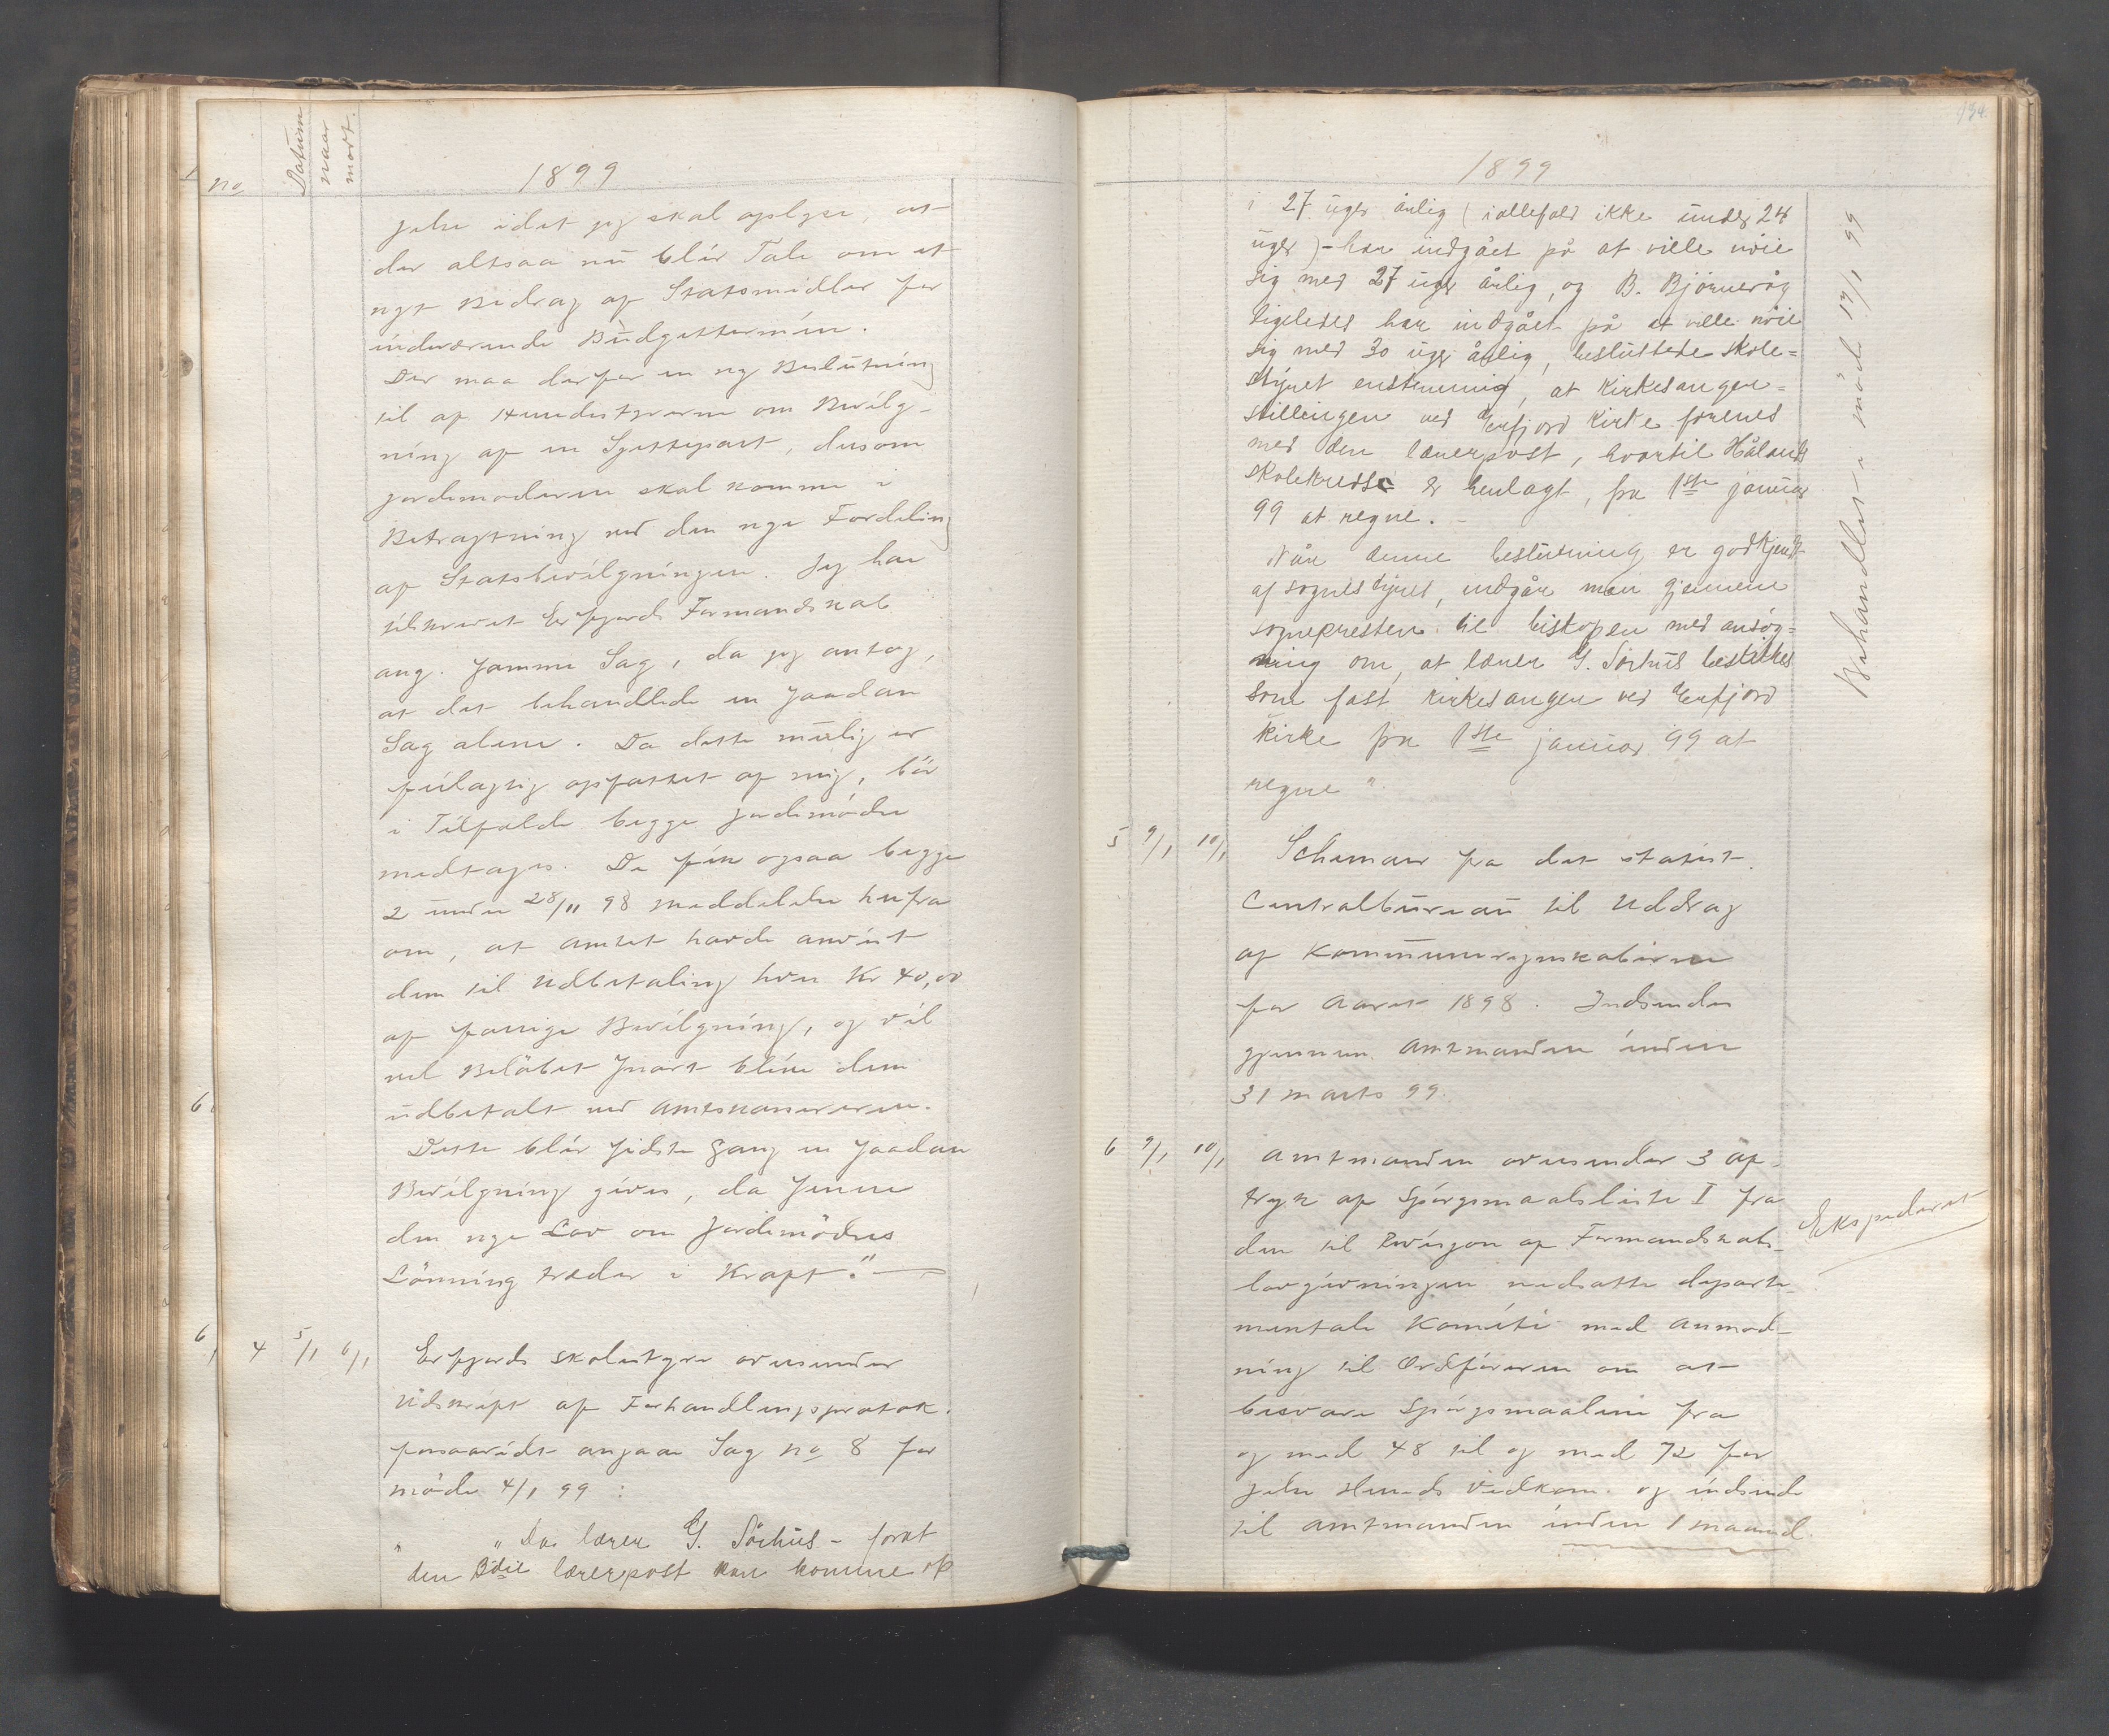 no
Datum
naar
modt.
1899
jelse idet jeg skal oplyse, at
der altsaa nu blir Tale om et
nyt Bidrag af Statsmidler for
indeværende Budgettermin.
Der maa derfor en ny Beslutning
til af Herredsstyrerne om Bevilg-
ning af en Sjettepart, dersom
jordemoderen skal komme i
Betragtning ved den nye Fordeling
af Statsbevilgningen. Jeg har
tilskrevet Erfjords Formandskab
ang. samme Sag, da jeg antog,
at det behandlede en saadan
Sag alene. Da dette muelig er
feilagtig opfattet af mig, bör
i Tilfælde begge jordemödre
medtages. De fik ogsaa begge
2 under 28/11 98 Meddelelse herfra
om, at Amtet havde anvist
dem til Udbetaling hver Kr 40,00
af forrige Bevilgning, og vil
vel Belöbet snart blive dem
udbetalt ved Amtskassereren.
Dette blir sidste Gang en saadan
Bevilgning gives, da senere
den nye Lov om Jordemödres
Lönning træder i Kraft." —
6
6/1
4 5/1 6/1 Erfjords skolestyre oversender
Udskrift af Forhandlingsprotok.
forsaavidt angaar Sag No 8 for
möde 4/1 99 :
" " Da lærer G. Sörhus - forat
den 3die lærerpost kan komme op
134
1899
i 27 uger årlig (iallefald ikke under 24
uger) - har indgået på at ville nöie
sig med 27 uger årlig, og B. Björneråg
ligeledes har indgået på at ville nöie
sig med 30 uger årlig, besluttede skole=
styret enstemmig, at kirkesanger=
stillingen ved Erfjord kirke forenes
med den lærerpost, hvortil Hålands
skolekreds er henlagt, fra 1ste januar
99 at regne. -
Når denne beslutning er godkjendt
af sognestyret, indgår man gjennem
sognepresten til biskopen med ansög=
ning om, at lærer G. Sörhus beskikkes
som fast kirkesanger ved Erfjord
kirke fra 1ste januar 99 at
regne "
Behandlet i möde 17/1 99
5 9/1 10/1 Schemaer fra det statist.
Centralbureau til Uddrag
af Kommuneregnskaberne
for Aaret 1898. Indsendes
gjennem Amtmanden inden
31 marts 99.
6 9/1 10/1 Amtmanden oversender 3 Af-
tryk af Spörgsmaalsliste I fra
den til Revisjon af Formandskabs-
lovgivningen nedsatte departe-
mentale Komite med Anmod-
ning til Ordföreren om at
besvare Spörgsmaalene fra
og med 48 til og med 72 for
jelse Herreds Vedkom. og indsende
til Amtmanden inden 1 maaned.
Ekspederet